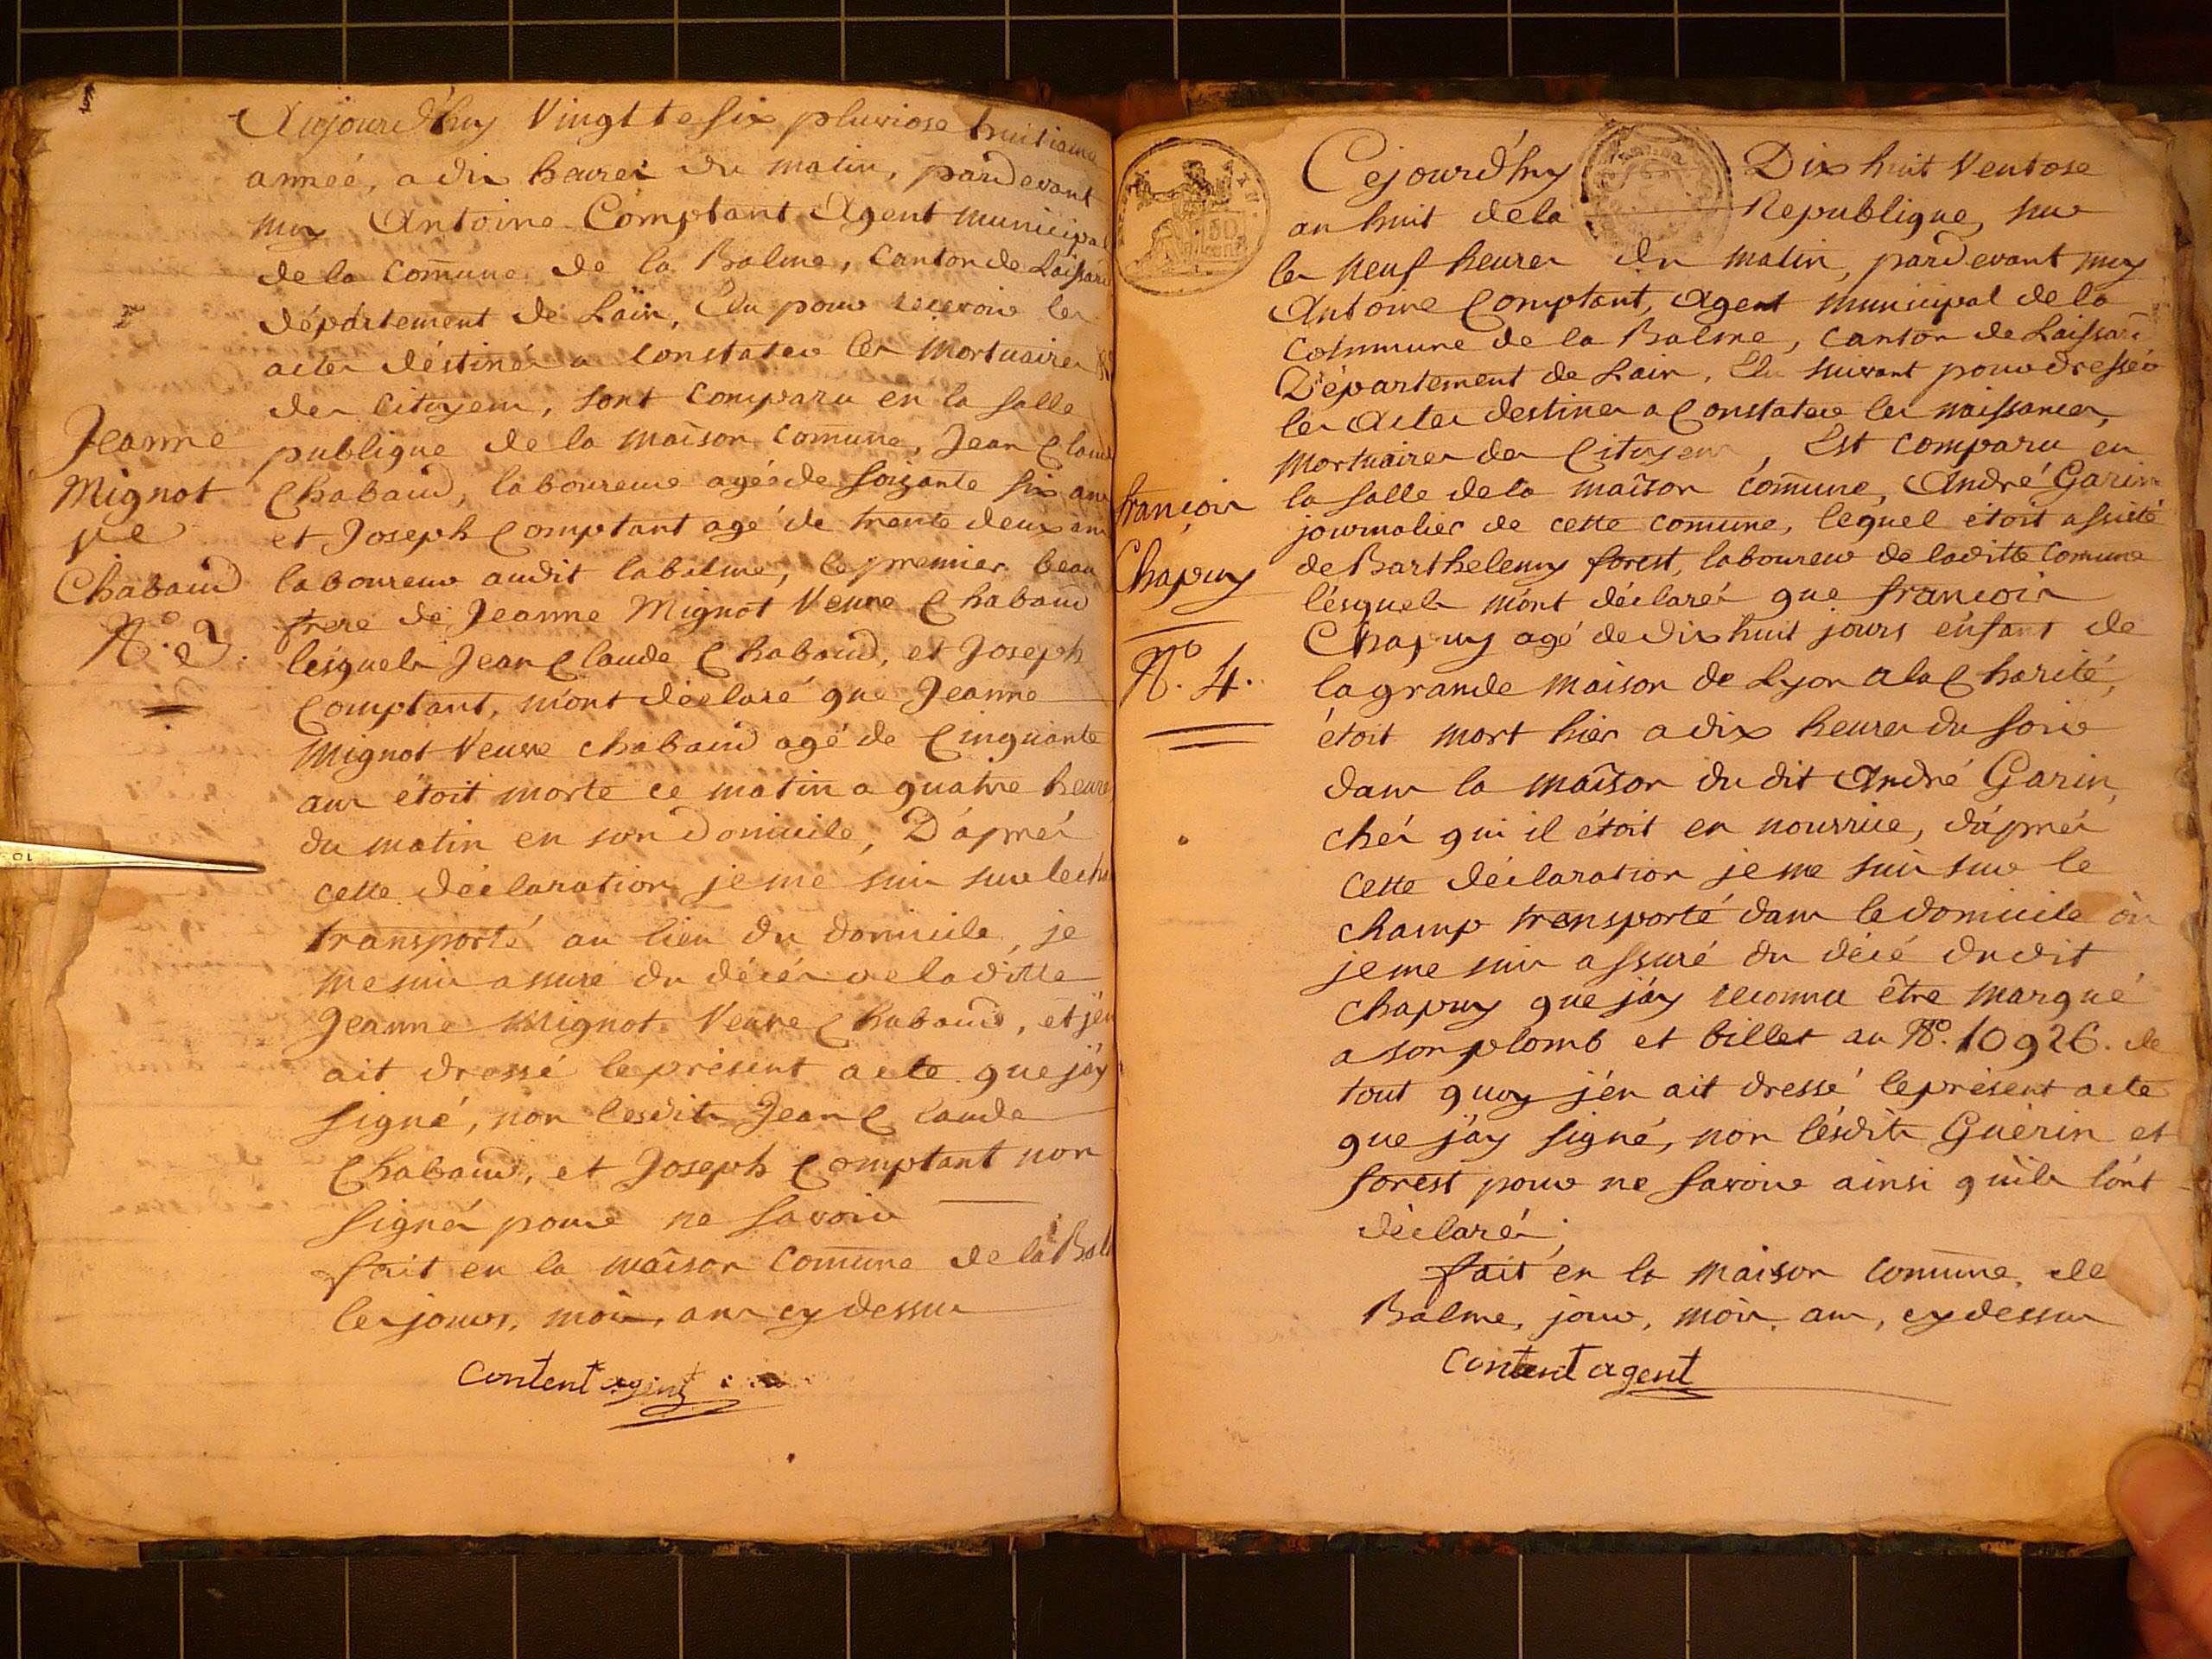 Aujourd'huy Vingtte six pluviose huitieme
année, a dix heures du matin, pardevant
moy Antoine Comptant Agent municipal
de la Comune de la Balme, Canton de Laissard
département de Lain, Elu pour recevoir les
actes déstinés a Constater les mortuaires
des Citoyens, sont Comparu en la salle
publique de la maison Comune, Jean Claude
Chabaud, laboureur agé de soixante six ans
et Joseph Comptant agé de trente deux ans
laboureur audit labalme, le premier beau
frere de Jeanne Mignot Veuve Chabaud
lésquels Jean Claude Chabaud, et Joseph
Comptant, m'ont déclaré que Jeanne
Mignot Veuve chabaud agé de Cinquante
ans étoit morte ce matin a quatre heures
du matin en son Domicile, D'áprés
cette déclaration je me suis sur le cha
transporté au lieu du domicile, je
me suis assuré du décés de la ditte
Jeanne Mignot Veuve Chabaud, et j'en
ait dressé le présent acte que j'ay
signé, non lesdits Jean Claude
Chabaud, et Joseph Comptant non
signés pour ne savoir
fait en la maison Comune de la Bal
les jours, mois, ans cy dessus
Content agent
Jeanne
Mignot
ve
Chabaud
N.o 3.
Cejourd'huy Dix huit Ventose
an huit de la Republique, sur
les neuf heures du matin, pardevant moy
Antoine Comptant, Agent municipal de la
Commune de la Balme, Canton de Laissard
Département de Lain, Elu suivant pour dresser
les Actes destines a Constater les naissances,
Mortuaires des Citoyens, Est Comparu en
la salle de la maison Comune, André Garin
journalier de cette comune, lequel étoit assisté
de Barthelemy forest, laboureur de laditte Comune
lésquels m'ont déclarés que francois
Chapuy agé de dix huit jours enfant de
la grande maison de Lyon a la Charité,
étoit mort hier a dix heures du soir
dans la maison du dit André Garin,
chés qui il étoit en nourrice, d'áprés
cette déclaration je me suis sur le
champ transporté dans le domicile où
je me suis assuré du décé dudit
chapuy que j'ay reconnu être marqué
a son plomb et billet au N.o 10926. de
tout quoy j'en ait dressé le présent acte
que j'ay signé, non lésdits Guérin et
forest pour ne savoir ainsi quils lont
déclarés,
fait en la maison Comune, de
Balme, jour, mois, ans, cy dessus
Content agent
francois
Chapuy
N.o 4.